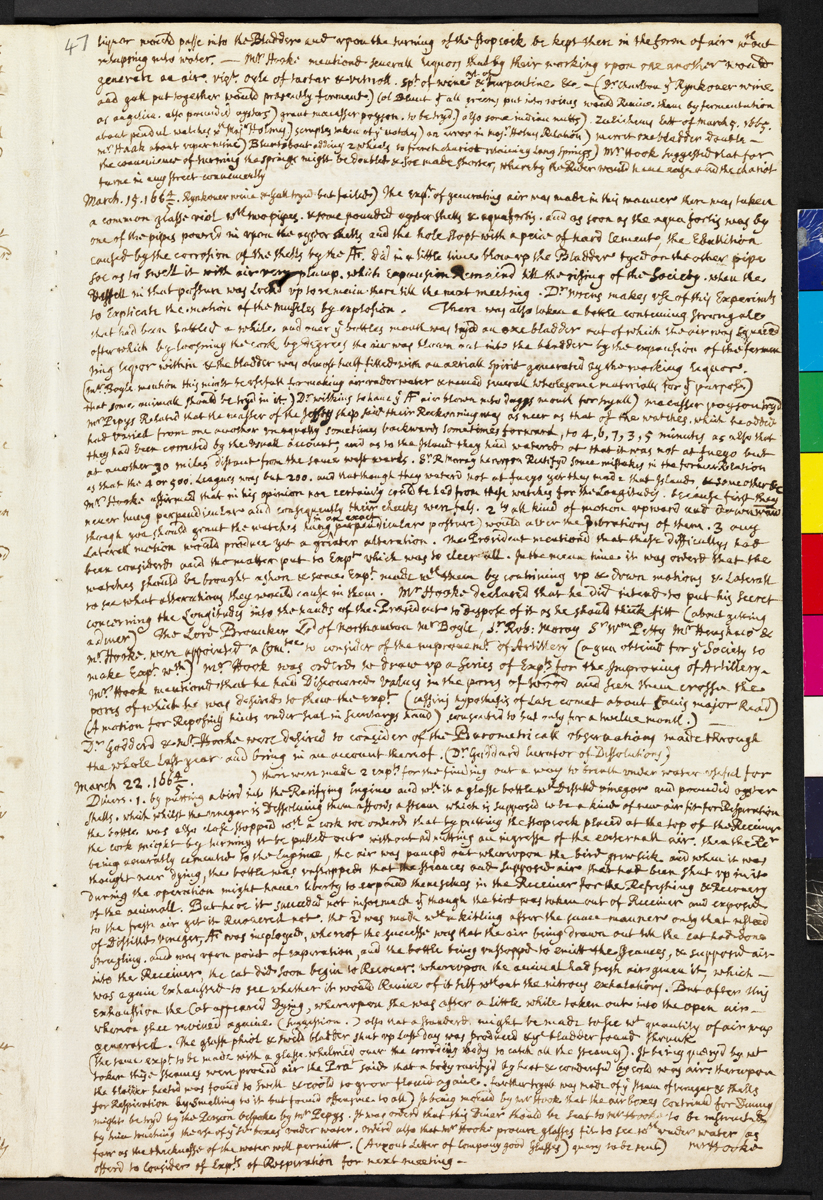 47
liquor would passe into the Bladder and upon the turning of the stopcock be kept there in the form of air wthout
relapsing into water. — Mr. Hooke mentiond severall liquors that by their working upon one another would
generate an air. viz. oyle of tartar & vitrioll. spt. of wine & turpentine &c — (Dr. Charlton yt Rynhoner wine
and gall put together would presently ferment) (Col Blunt yt all greens put into wines would Revive them by fermentation
as angelica. also pouderd oysters) grant macasser poyson. to be tryd) also some indian nutts). Zulichems lett of March 5. 1665.
about pendul watches yt Majr Holmes) scruples taken of ye watches) an error in majr Holms Relation) merret see bladder double —
mr. Haak about viper wine) Blunt about adding 2 wheels to french chariot retaining long springs) Mr Hook suggested that for
the convenience of turning the springs might be doubled & soe made shorter, whereby the Rider would have ease and the chariot
turne in any street conveniently
March. 15. 1664/5. Rynhoner wine & Gall tryd but failed) The expt. of generating air was made in this manner there was taken
a common glasse viol wth two pipes. & some pounded oyster shells & aqua fortis. and as soon as the aqua fortis was by
one of the pipes powred in upon the oyster shells and the hole stopt with a peice of hard cement, the Ebullition
caused by the corrosion of the shells by the AF. did in a little time blow up the Bladder tyed on the other pipe
soe as to swell it with air very plump. which Expansion remaind till the rising of the Society. when the
vessell in that posture was lockd up to remain there till the next meeting. Dr. Wrens makes use of this Experiment
to Explicate the motion of the muscles by explosion. There was also taken a bottle containing strong ale
that had been bottled a while, and over ye bottles mouth was tyed an oxe bladder out of which the air was squeezed
after which by loosning the cork by degrees the air was blown out into the bladder by the expansion of the fermen
ting liquor within & the bladder was almost half filled with an aeriall spirit generated by the working liquor.
(mr. Boyle mention this might be usefull for making air under water & named severall wholesome materialls for yt purpose)
that some, animalls should be tryd in it.) Dr. wilkins to have ye AF air blown into doggs mouth for tryall) macasser poyson tryd
Mr. Pepys Related that the master of the Jersey ship said their Reckonning was as neer as that of the watches, which he added
had varied from one another unequally sometimes backward sometimes forward, to 4, 6, 7, 3, 5 minutes as also that
they had been corrected by the usuall account; and as to the Island they had watered at that it was not at fuego but
at another 30 miles distant from the same west wards. Sr. R. moray hereupon Rectifyd some mistakes in the former Relation
as that the 4 or 500. leagues was but 200. and that though they waterd not at fuego yet they made that Island,
Mr. Hooke affirmed that in his opinion noe certainty could be had from these watches for the Longitudes. Because first they
never hung perpendicular and consequently their checks were fals. 2ly all kind of motion upward and downward
though you should grant the watches hung in an exact perpendicular posture) would alter the vibrations of them. 3 any
Laterall motion would produce yet a greater alteration. The President mentiond that these difficultys had
been considerd and the matter put to Expt. which was to cleer all. In the mean time it was orderd that the
watches should be brought ashore & some Expt. made wth them by contriving up & down motions & Laterall
to see what alterations they would cause in them. Mr Hooke declared that he did intend to put his secret
concerning the Longitudes into the hands of the President to dispose of it as he should think fitt (about getting
admer) The Lord Brouncker Ld. of Northamton Mr. Boyle, Sr. Rob: Moray Sr Wm. Petty Mr Henshaw &
Mr. Hooke were appointed a Comtee to consider of the improuemt. of Artillery (a gun offerd for ye Society to
make Expt. wth) Mr. Hook was orderd to draw up a Series of Expts. for the Improving of Artillery.
Mr. Hook mentiond that he had Discovered Valves in the pores of wood and seen them crosse the
pores of which he was desired to shew the Expt. (Cassinis hypothesis of late comet about Canis major Read)
(A motion for Reposing hints under seal in secretarys hand) consented to but only for a twelve month.) —
Dr. Goddard & Mr. Hooke were desired to consider of the Barometricall observations made through
the whole last year and bring in an account thereof. (Dr. Goddard Curator of Dissolutions)
March 22. 1664/5.) there were made 2 expts. for the finding out a way to breath under water usefull for
Divers. 1. by putting a bird into the Rarifying Engine and wth it a glasse bottle wth Distilld vinegar and pouderd oyster
shells. which whilst the vinegar is dissolving them affords a steam which is supposed to be a kind of new air fit for Respiration
the bottle was also close stopped wth a cork soe orderd that by putting the stopcock placed at the top of the Receiver
the cork might by turning it be pulled out without admitting an ingresse of the externall air. then the Rer
being accurately cemented to the Engine, the air was pumpd out whereupon the bird grew sick. and when it was
thought neer dying, the bottle was unstopped that the steames and supposed air that had been shut up in it
during the operation might have liberty to expand themselves in the Receiver for the Refreshing & Recovery
of the animall. But here it succeeded not insomuch yt though the bird was taken out of Receiver and exposed
to the fresh air yet it Recovered not. the 2d was made wth a kitling after the same manner only that instead
of distilld vinegar, AF was imployed, whereof the successe was that the air being drawn out till the cat had done
strugling. and was upon point of expiration, and the bottle being unstopped to emitt the steames, & supposed air
into the Receiver, the cat did soon begin to Recover. whereupon the animal had fresh air given it, which —
was again Exhausted to see whether it would Revive of it self without the nitrous exhalations. But after this
Exhaustion the Cat appeared Dying, whereupon she was after a little while taken out into the open air —
whereon shee revived againe. (suggestion.) also that a standard might be made to see wt quantity of air was
generated. The glasse phiol & wild bladder shut up last day was produced & ye bladder found shrunk
(the same expt. to be made with a glasse. whelmed over the corroding body to catch all the steames). It being queryd by wt
token these steames were proved air the Prest said that a body rarifyd by heat & condensd by cold was air. thereupon
the bladder heated was found to swell & coold to grow flaccid againe. further tryals was made of ye steam of vinegar & shells
for Respiration by smelling to it but found offensive to all) It being moved by mr Hook that the air boxes contrived for Diving
might be tryd by the Person bespoke by Mr Pepys. It was orderd that this Diver should be sent to Mr Hooke to be instructed
by him touching the use of ye sd boxes under water. Orderd also that Mr Hooke procure glasses fit to see wth under water as
far as the thicknesse of the water will permitt. (Auzout Letter of Company good glasses) query to be sent) Mr Hooke
offerd to consider of Expts of Respiration for next meeting —